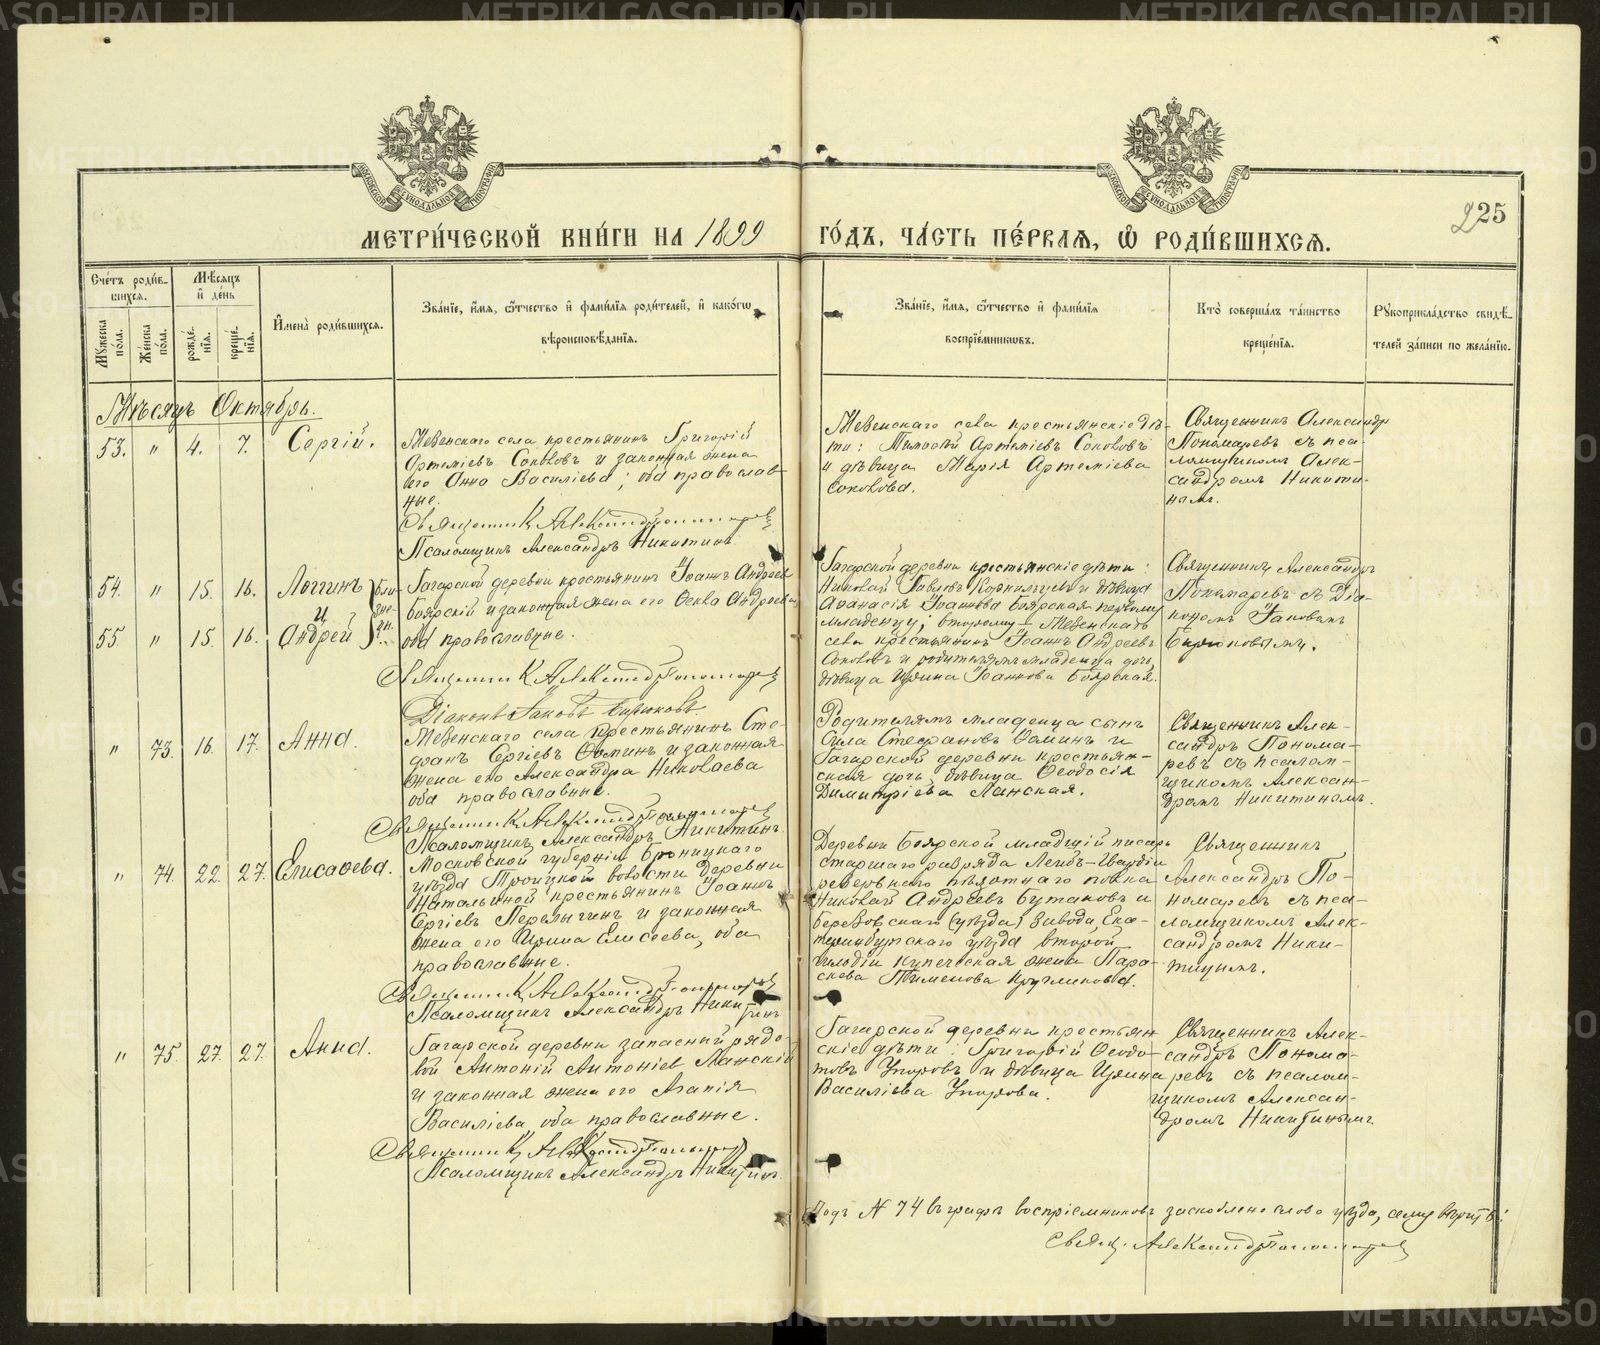 МЕТРИ́ЧЕСКОЙ КНИ́ГИ НА 1899 ГО́ДЪ, ЧА́СТЬ ПЕ́РВАЯ, Ѽ РОДИ́ВШИХСЯ.
225
Сче́тъ роди́в-
шихся.
Мѣ́сяцъ
и҆ де́нь
Мꙋ́жеска по́ла.
Же́нска по́ла.
рожде́-
нїя.
креще́-
нїя.
И҆мена̀ роди́вшихся.
Зва́нїе, и҆́мя, ѻ҆́тчество и҆ фами́лїя роди́телей, и҆ како́гѡ
вѣроисповѣ́данїя.
Зва́нїе, и҆́мя, ѻ҆́тчество и҆ фами́лїя
воспрїе́мникѡвъ.
Кто̀ соверша́лъ та́инство
креще́нїя.
Рꙋкоприкла́дство свидѣ́-
телей за́писи по жела́нїю.
Мѣсяцъ Октябрь.
53. " 4. 7. Сергій.
Мезенскаго села крестьянинъ Григорій
Артеміевъ Соколовъ и законная жена
его Анна Василіева; оба православ-
ные.
Священник Александр Пономарев
Псаломщикъ Александръ Никитинъ
Мезенскаго села крестьянскіе дѣ-
ти: Тимоѳей Артеміевъ Соколовъ
и дѣвица Марія Артеміева
Соколова.
Священникъ Александръ
Пономаревъ съ пса-
ломщикомъ Алек-
сандромъ Никити-
нымъ.
54. " 15. 16. Логгинъ
и
55. " 15 16. Андрей
близ-
не-
цы.
Гагарской деревни крестьянинъ Іоаннъ Андреевъ
Боярскій и законная жена его Ѳекла Андреева
оба православные.
Священник Александр Пономарев
Діаконъ Іаковъ Бирюковъ.
Гагарской деревни крестьянскіе дѣти:
Николай Павловъ и дѣвица
Аѳанасія Іоаннова Боярская первому
младенцу; второму — Мезенскаго
села крестьянинъ Іоаннъ Андреевъ
Соколовъ и родителямъ младенца дочь,
дѣвица Ирина Іоаннова Боярская.
Священникъ Александръ
Пономаревъ съ Діа-
кономъ Іаковомъ
Бирюковымъ.
" 73. 16. 17. Анна.
Мезенскаго села крестьянинъ Сте-
фанъ Сергіевъ Ѳоминъ и законная
жена его Александра Николаева
оба православные.
Священник Александр Пономарев
Псаломщикъ Александръ Никитинъ.
Родителямъ младенца сынъ
Сила Стефановъ Ѳоминъ и
Гагарской деревни крестьян-
ская дочь, дѣвица Ѳеодосія
Димитріева Ланская.
Священникъ Алек-
сандръ Понома-
ревъ съ псалом-
щикомъ Алексан-
дромъ Никитинымъ.
" 74. 22. 27. Елисавева.
Московской губерніи Броницкаго
уѣзда Троицкой волости деревни
Натальиной крестьянинъ Іоаннъ
Сергіевъ Перелыгинъ и законная
жена его Ирина Елисеева, оба
православные.
Священник Александр Пономарев
Псаломщикъ Александръ Никитинъ
Деревни Боярской младшій писарь
старшаго разряда Лейбъ-Гвардіи
резервнаго пѣхотнаго полка
Николай Андреевъ Бутаковъ и
Березовскаго (уѣзда) завода, Ека-
теринбургскаго уѣзда второй
гильдіи купеческая жена Пара-
скева Пименова
Священникъ
Александръ По-
номаревъ съ пса-
ломщикомъ Алек-
сандромъ Ники-
тинымъ.
" 75. 27. 27. Анна.
Гагарской деревни запасный рядо-
вой Антоній Антоніев Ланскій
и законная жена его Агапія
Василіева, оба православные.
Священник Александр Пономарев
Псаломщикъ Александръ Никитинъ.
Гагарской деревни крестьян-
скіе дѣти: Григорій Ѳеодо-
товъ Упоровъ и дѣвица Ирина
Василіева Упорова.
Священникъ Алек-
сандръ Понома-
ревъ съ псалом-
щикомъ Алексан-
дромъ Никитинымъ.
Подъ № 74 въ графѣ воспріемниковъ заскоблено слово уѣзда, сему вѣрить:
Свящ. Александр Пономарев